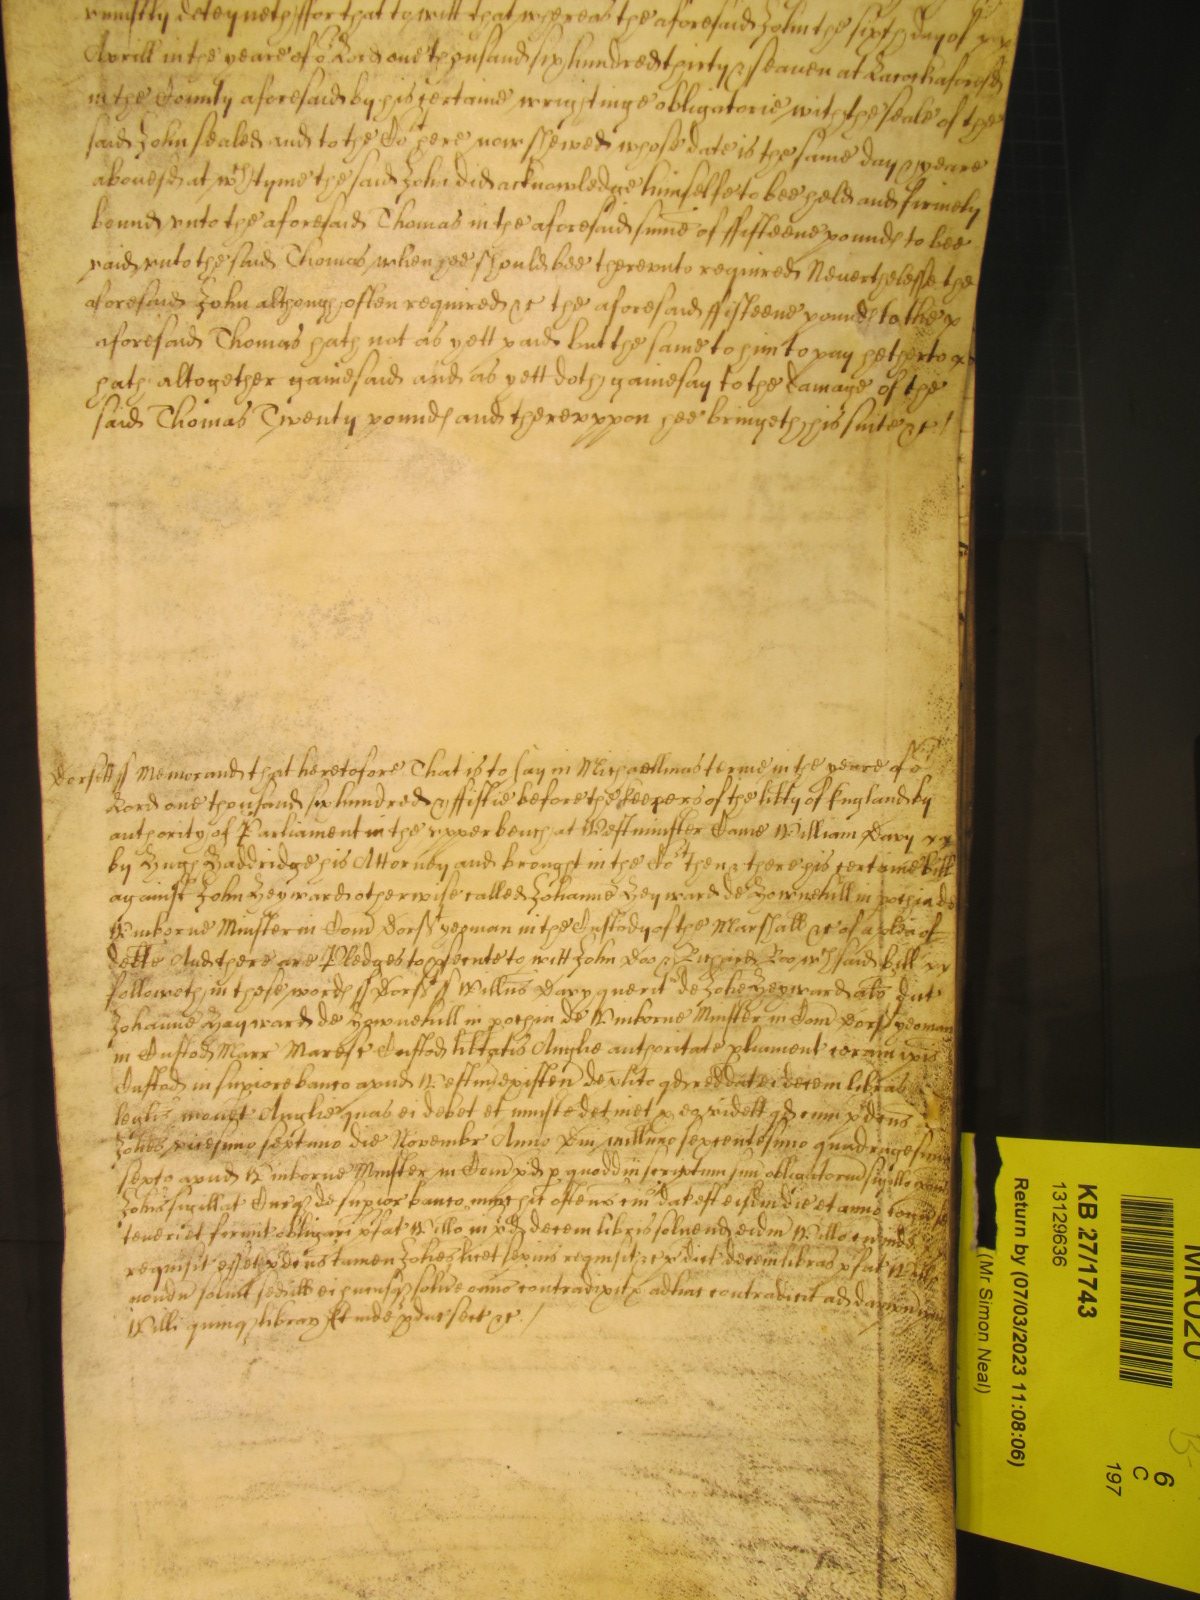 uniustly deteyneth ffor that to witt that whereas the aforesaid John the sixth day of
Aprill in the yeare of or Lord one thousand six hundred thirty & seaven at Lacock aforesd
in the County aforesaid by his certaine wrightinge obligatorie with the seale of the
said John sealed and to the Cort here now shewed whose date is the same day & yeare
abovesd at wch tyme the said John did acknowledge himselfe to bee held and firmely
bound unto the aforesaid Thomas in the aforesaid sume of ffifteene pounds to bee
paid unto the said Thomas when hee should bee thereunto required Neverthelesse the
aforesaid John although often required &c the aforesaid ffifteene pounds to the
aforesaid Thomas hath not as yett paid but the same to him to pay hetherto
hath altogether gainesaid and as yett doth gainesay to the damage of the
said Thomas Twenty pounds and thereuppon hee bringeth his suite &c
Dorsett ss Memorand that heretofore That is to say in Michaellmas terme in the yeare of or
Lord one thousand six hundred & ffiftie before the keepers of the libty of England by
authority of Parliament in the upper bench at Westminster Came William Davy
by Hugh Hoddridge his Attorney and brought in the Cort then & there his certaine bill
against John Heyward otherwise called Johanne Heyward de Hownehill in pochia de
Winborne Minster in Com Dorst yeoman in the Custody of the Marshall &c of a plea of
debte And there are Pledges to psecute to witt John Doo & Richard Roo wch said bill
followeth in these words ss Dorst ss Willus Davy querit de Johe Heyward als dict
Johanne Hayward de Hownehill in pochia de Winborne Minster in Com Dorst yeoman
in Custod Marr Maresc Custod libtatis Anglie authoritate pliament coram ipis
Custod in supiore banco apud Westm existen de plito qd reddat ei decem libras
leglis monet Anglie quas ei debet et iniuste detinet p eo videlt qd cum pdcus
Johes vicesimo septimo die Novembr Anno Dni millimo sexcentesimo quadragesimo
septo apud Winborne Minster in Com pd p quoddm scriptum suu obligatoriu sigillo
Johis sigillat Curie de supior banco hic ostens cuis dat est eisdm die et anno
teneri et firmit obligari pfat Willo in pd decem libris solvend eidm Willo cum inde
requisit esset pdcus tamen Johes licet sepius requisit &c pdict decem libras pfat Willo
nondu solvit sed ill ei hucusq solve omo contradixit & adhuc contradicit ad dampnu
Willi quinq librar Et inde pduc sect &c
MR020
KB 27/1743
13129636
Return by (07/03/2023 11:08:06)
(Mr Simon Neal)
6
C
197